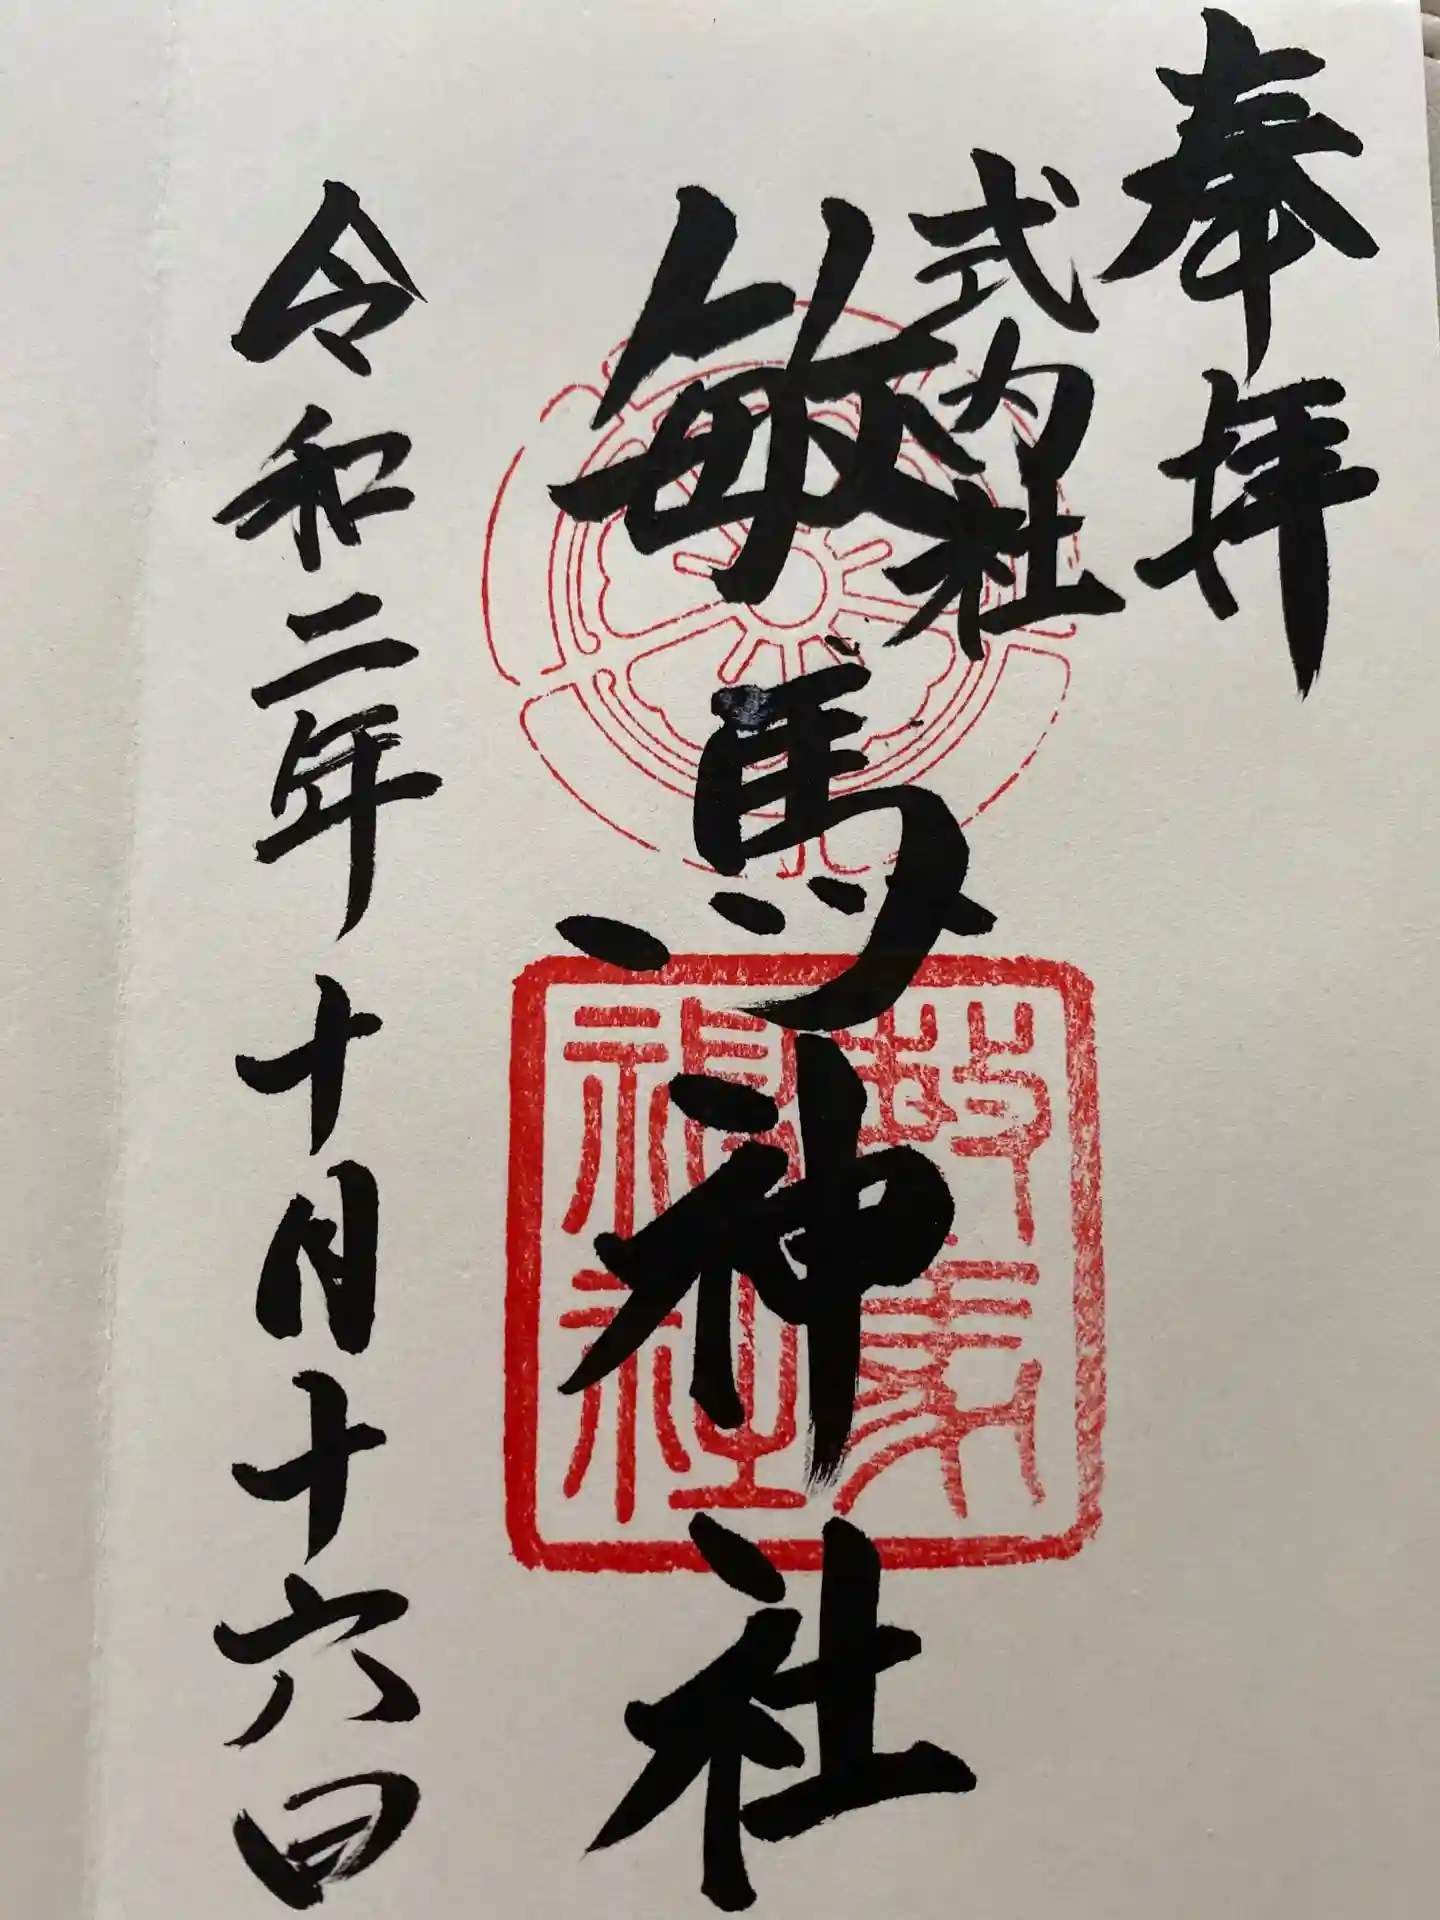 奉拝
式内社
敏馬神社
令和二年十月十六日